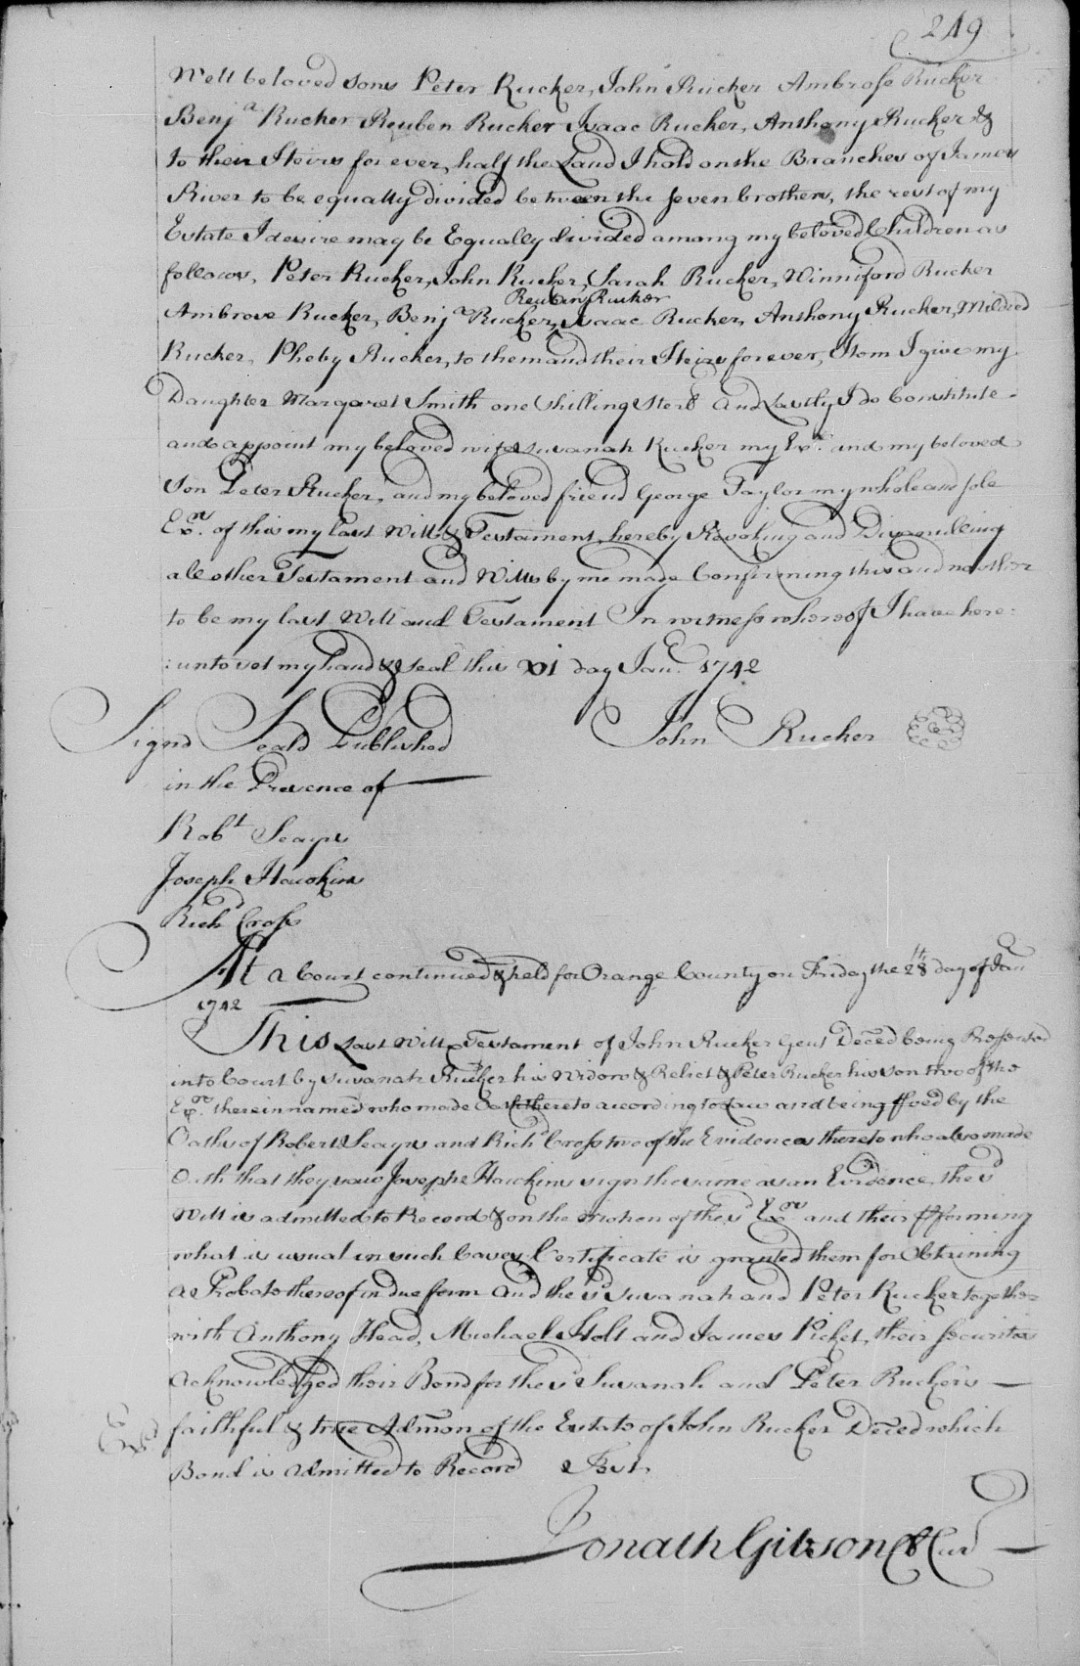 249
Well beloved sons Peter Rucker, John Rucker Ambrose Rucker
Benj.a Rucker Reuben Rucker Isaac Rucker, Anthony Rucker &
to their Heirs for ever, half the Land I hold on the Branches of James
River to be equally divided between the seven brothers, the rest of my
Estate I desire may be Equally divided among my beloved Children as
follows, Peter Rucker, John Rucker, Sarah Rucker, Winniford Rucker
Reuben Rucker
Ambrose Rucker, Benj.a Rucker, ^ Isaac Rucker, Anthony Rucker, Mildred
Rucker, Pheby Rucker, to them and their Heirs forever, Item I give my
Daughter Margaret Smith one Shilling Sterl. And Lastly I do Constitute
and appoint my beloved wife Susanah Rucker my Ex.x and my beloved
Son Peter Rucker, and my beloved friend George Taylor my whole and sole
Ex.rs of this my Last Will & Testament, hereby Revoking and Disanulling
all other Testament and Wills by me made Confirming this and no other
to be my last Will and Testament In witness whereof I have here:
:unto set my hand & seal this XI day Jan.ry 1742
Signd Seald Published John Rucker
in the Presence of
Rob.t Seayrs
Joseph Hawkins
Rich.d Cross
At a Court continued & held for Orange County on Friday the 28th day of Jan.ry
1742
This Last Will & Testament of John Rucker Gent Deced being Presented
into Court by Susanah Rucker his Widow & Relict & Peter Rucker his son two of the
Ex.rs therein named who made Oath thereto according to Law and being Proved by the
Oaths of Robert Seayrs and Rich.d Cross two of the Evidences thereto who also made
Oath that they saw Joseph Hawkins sign the same as an Evidence, the s.d
Will is admitted to Record & on the motion of the s.d Ex.rs and their Performing
what is usual in such Cases Certificate is granted them for Obtaining
a Probate thereof in due form And the s.d Susanah and Peter Rucker together
with Anthony Head, Michael Holt and James Picket, their Securities
acknowledged their Bond for the s.d Susanah and Peter Rucker's
faithful & true Admon of the Estate of John Rucker Deced which
Bond is admitted to Record Test,
Ex.d
Jonath Gibson Cl Cur